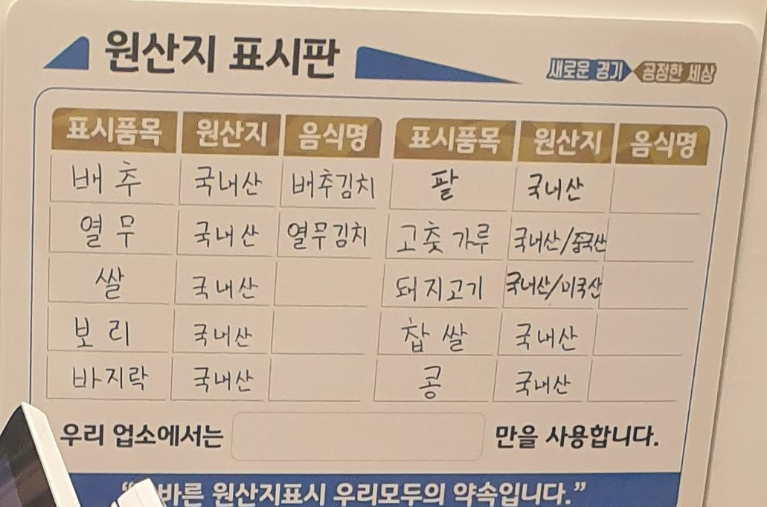 원산지 표시판
새로운 경기 공정한 세상
표시품목 원산지 음식명 표시품목 원산지 음식명
배추 국내산 배추김치 팥 국내산
열무 국내산 열무김치 고춧가루 국내산/중국산
쌀 국내산 돼지고기 국내산/미국산
보리 국내산 찹쌀 국내산
바지락 국내산 콩 국내산
우리 업소에서는 만을 사용합니다.
바른 원산지표시 우리모두의 약속입니다.”